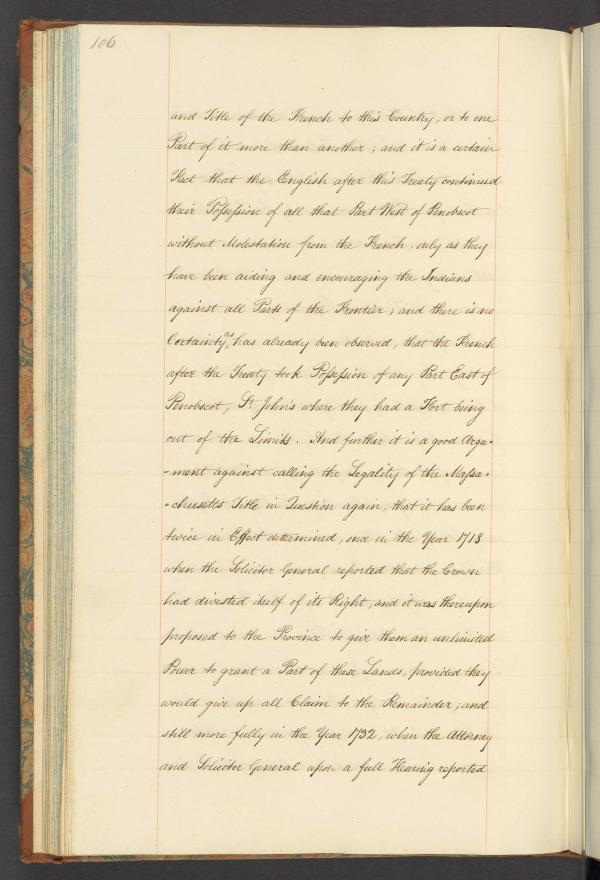 106
and Title of the French to this Country, or to one
Part of it more than another; and it is a certain
Fact that the English after this Treaty continued
their Possession of all that Part West of Penobscot
without Molestation from the French, only as they
have been aiding and encouraging the Indians
against all Parts of the Frontier; and there is no
Certainty, as has already been observed, that the French
after the Treaty took Possession of any Part East of
Penobscot, St. John's where they had a Fort being
out of the Limits. And further it is a good Argu-
-ment against calling the Legality of the Massa-
-chusetts Title in Question again, that it has been
twice in Effect determined, once in the Year 1718
when the Solicitor General reported that the Crown
had divested itself of its Right, and it was thereupon
proposed to the Province to give them an unlimited
Power to grant a Part of these Lands, provided they
would give up all Claim to the Remainder; and
still more fully in the Year 1732, when the Attorney
and Solicitor General upon a full Hearing reported